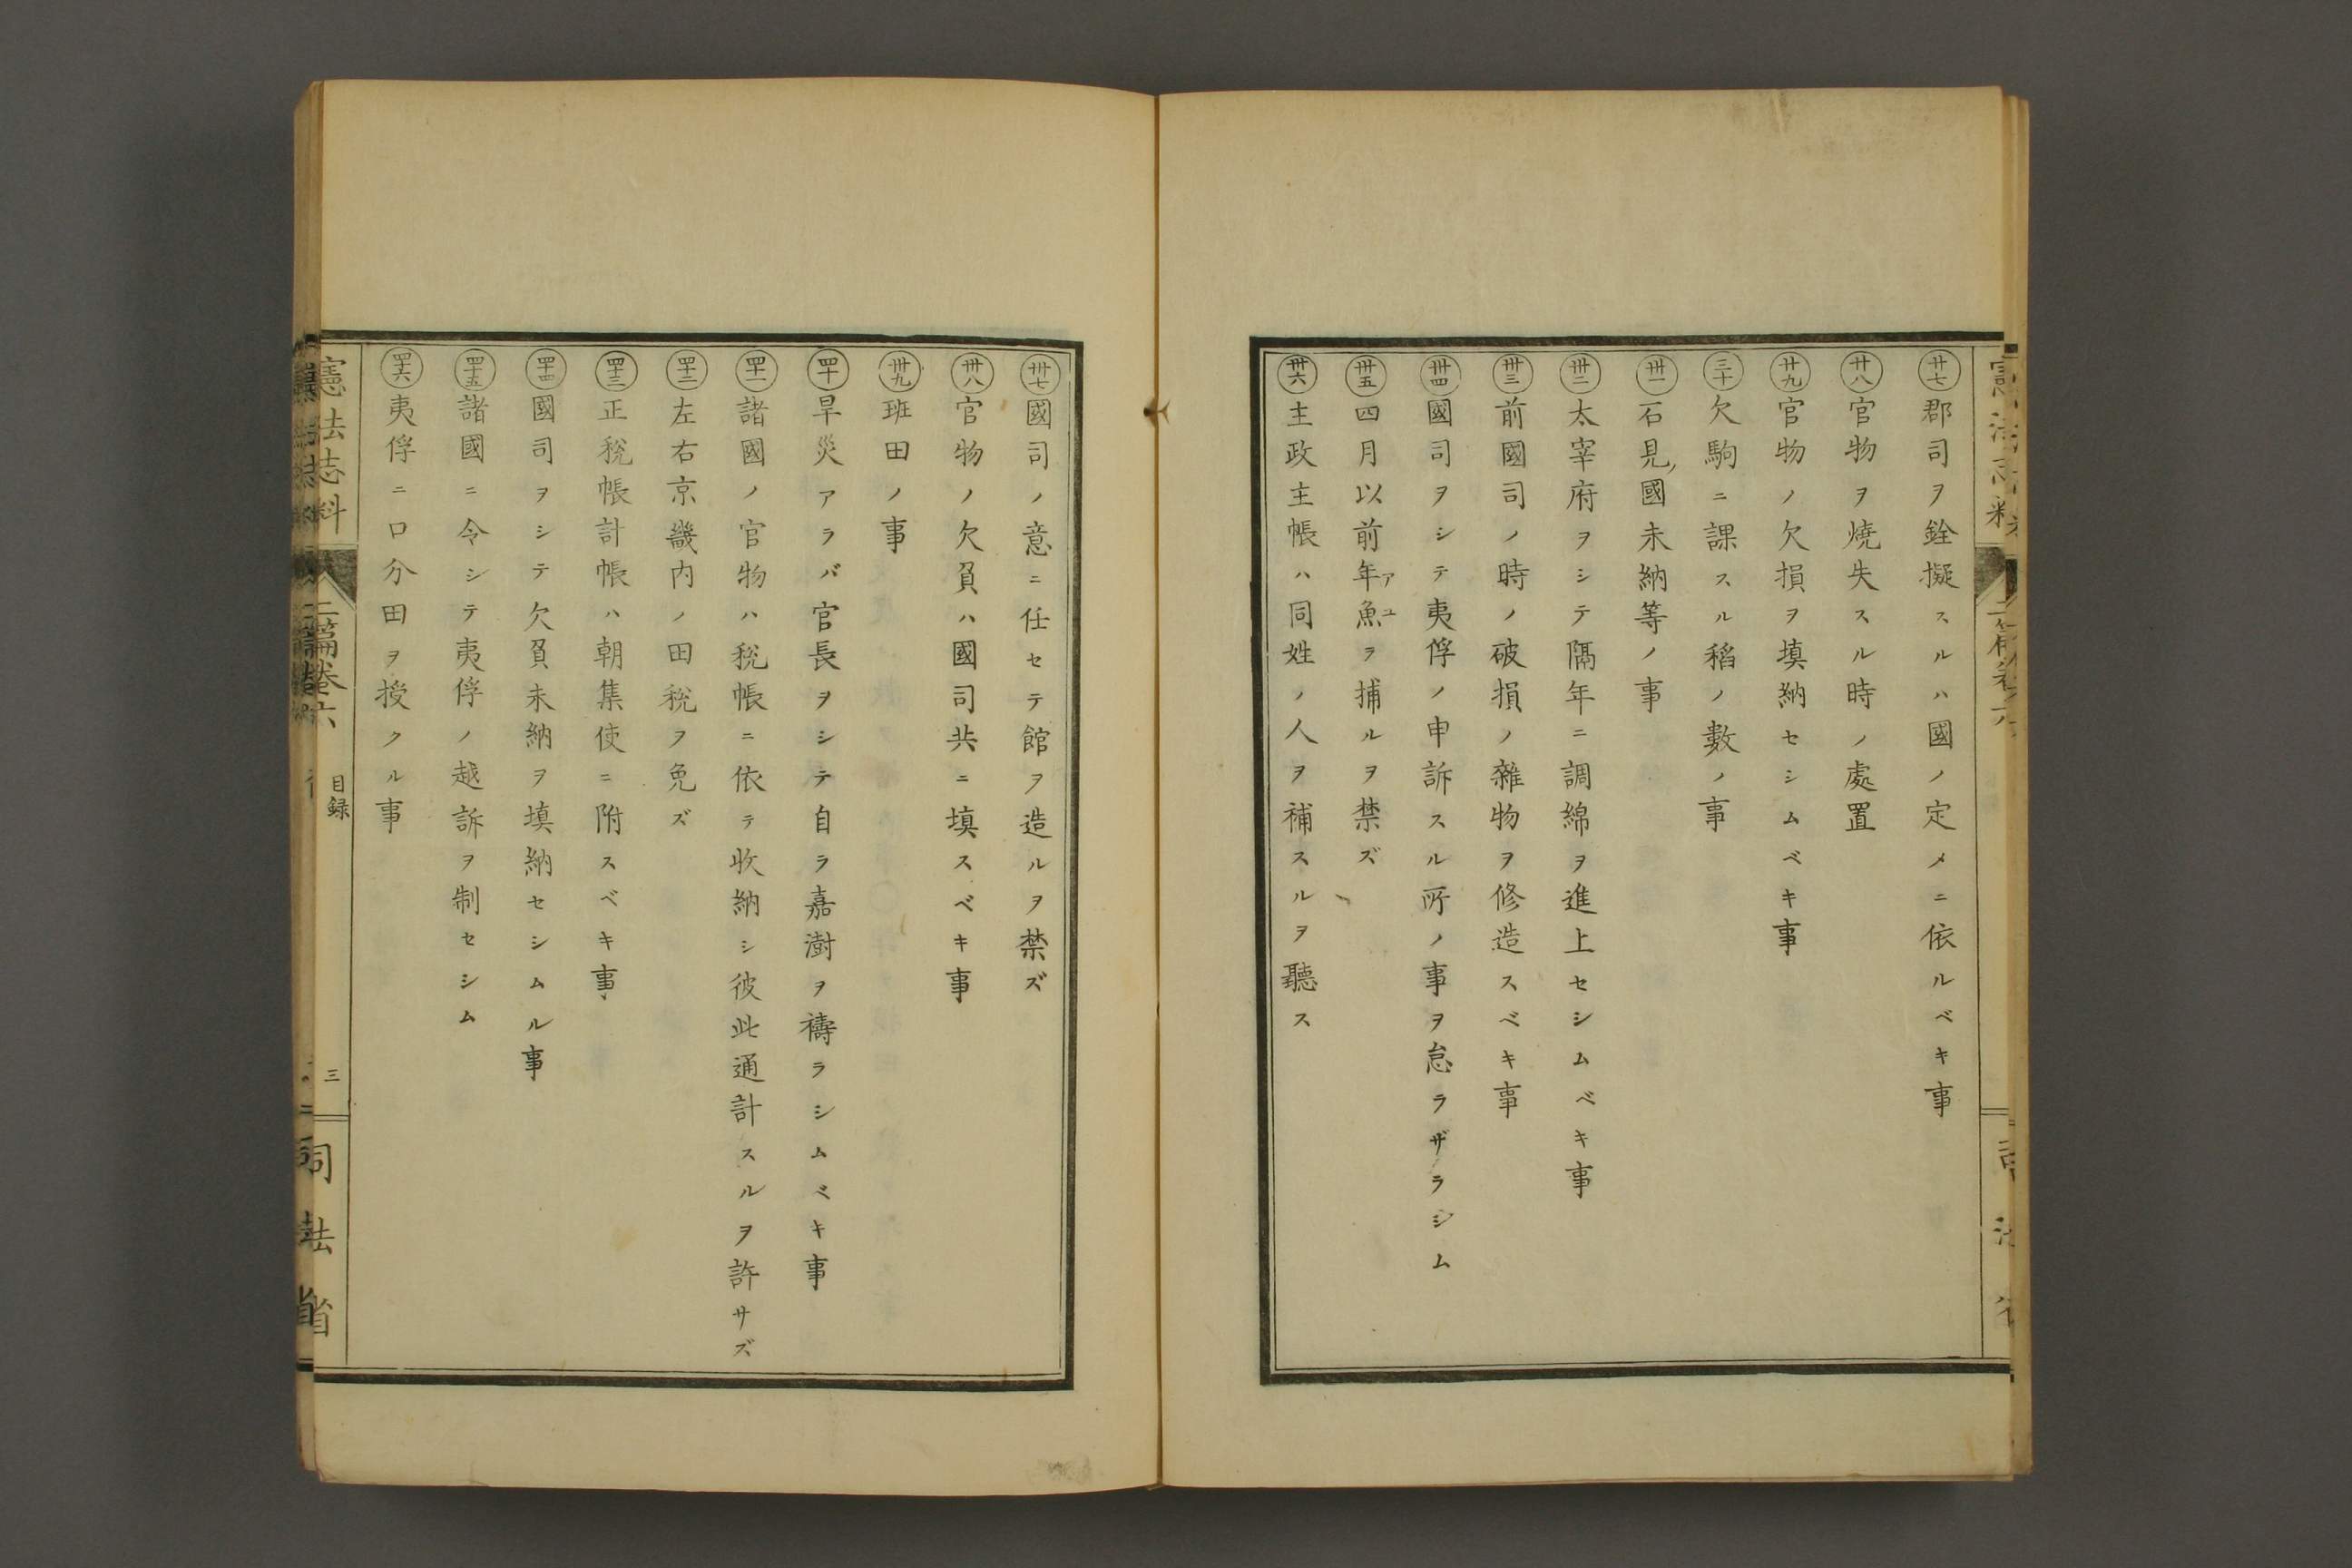 廿七 郡司ヲ銓擬スルハ國ノ定メニ依ルベキ事
廿八 官物ヲ燒失スル時ノ處置
廿九 官物ノ欠損ヲ填納セシムベキ事
三十 欠駒ニ課スル稻ノ數ノ事
丗一 石見國未納等ノ事
丗二 太宰府ヲシテ隔年ニ調綿ヲ進上セシムベキ事
丗三 前國司ノ時ノ破損ノ雜物ヲ修造スベキ事
丗四 國司ヲシテ夷俘ノ申訴スル所ノ事ヲ怠ラザラシム
丗五 四月以前年魚アユヲ捕ルヲ禁ズ
丗六 主政主帳ハ同姓ノ人ヲ補スルヲ聽ス
丗七 國司ノ意ニ任セテ館ヲ造ルヲ禁ズ
丗八 官物ノ欠負ハ國司共ニ填スベキ事
丗九 班田ノ事
四十 旱災アラバ官長ヲシテ自ラ嘉澍ヲ禱ラシムベキ事
四十一 諸國ノ官物ハ稅帳ニ依テ收納シ彼此通計スルヲ許サズ
四十二 左右京畿内ノ田稅ヲ免ズ
四十三 正稅帳計帳ハ朝集使ニ附スベキ事
四十四 國司ヲシテ欠負未納ヲ填納セシムル事
四十五 諸國ニ令シテ夷俘ノ越訴ヲ制セシム
四十六 夷俘ニ口分田ヲ授クル事
憲法志料 二篇卷六 目録 三 司法省